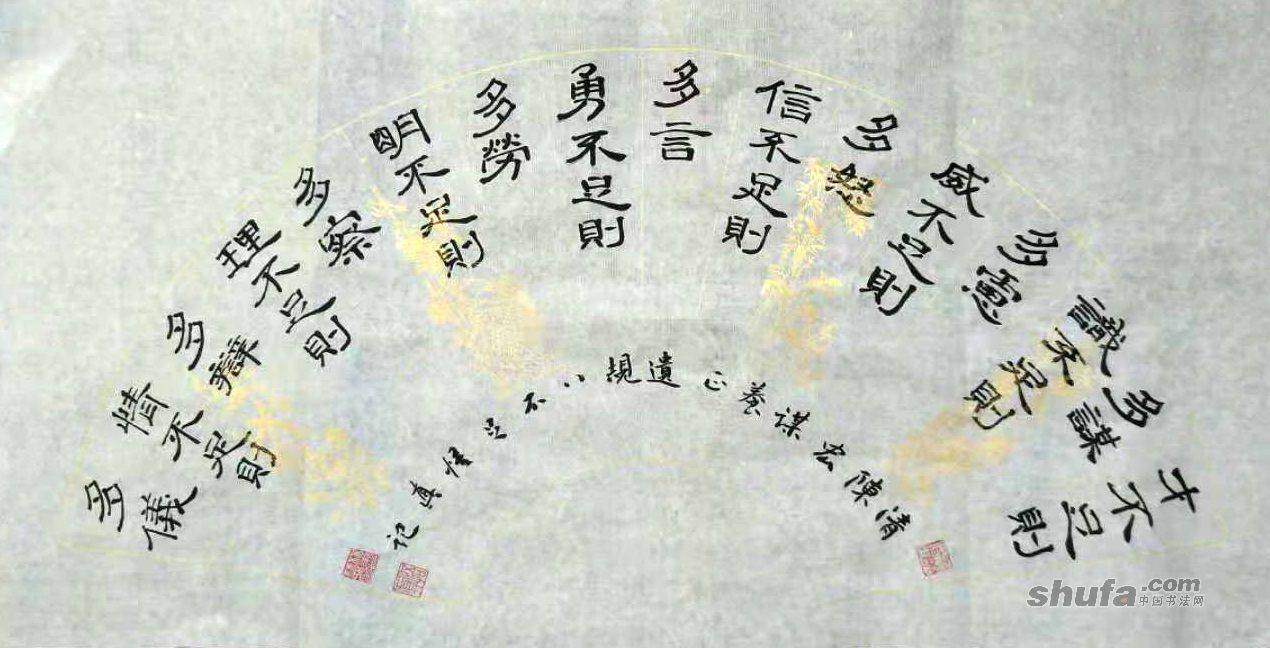 才不足則
多謀
識不足則
多慮
威不足則
多怒
信不足則
多言
勇不足則
多勞
明不足則
多察
理不足則
多辯
情不足則
多儀
清陳宏謀養正遺規八不足悟真記
shufa.com
中国书法网